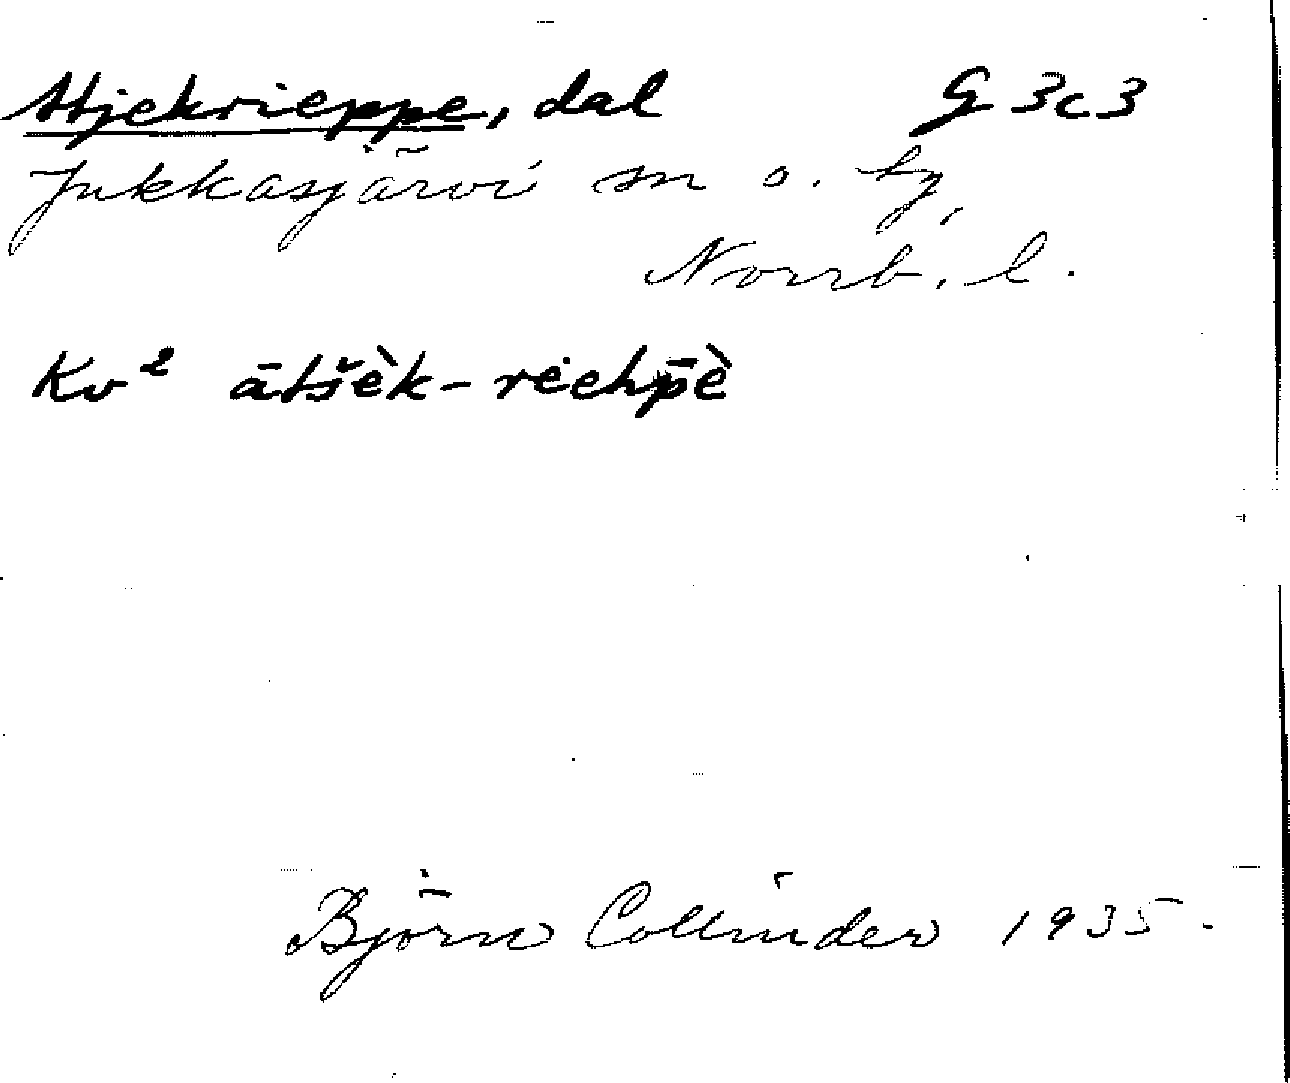 Atjekrieppe, dal G 3c3
Jukkasjärvi sn o. tg,
Norrb. l.
Kv² ātšèk-riehpè
Björn Collinder 1935.